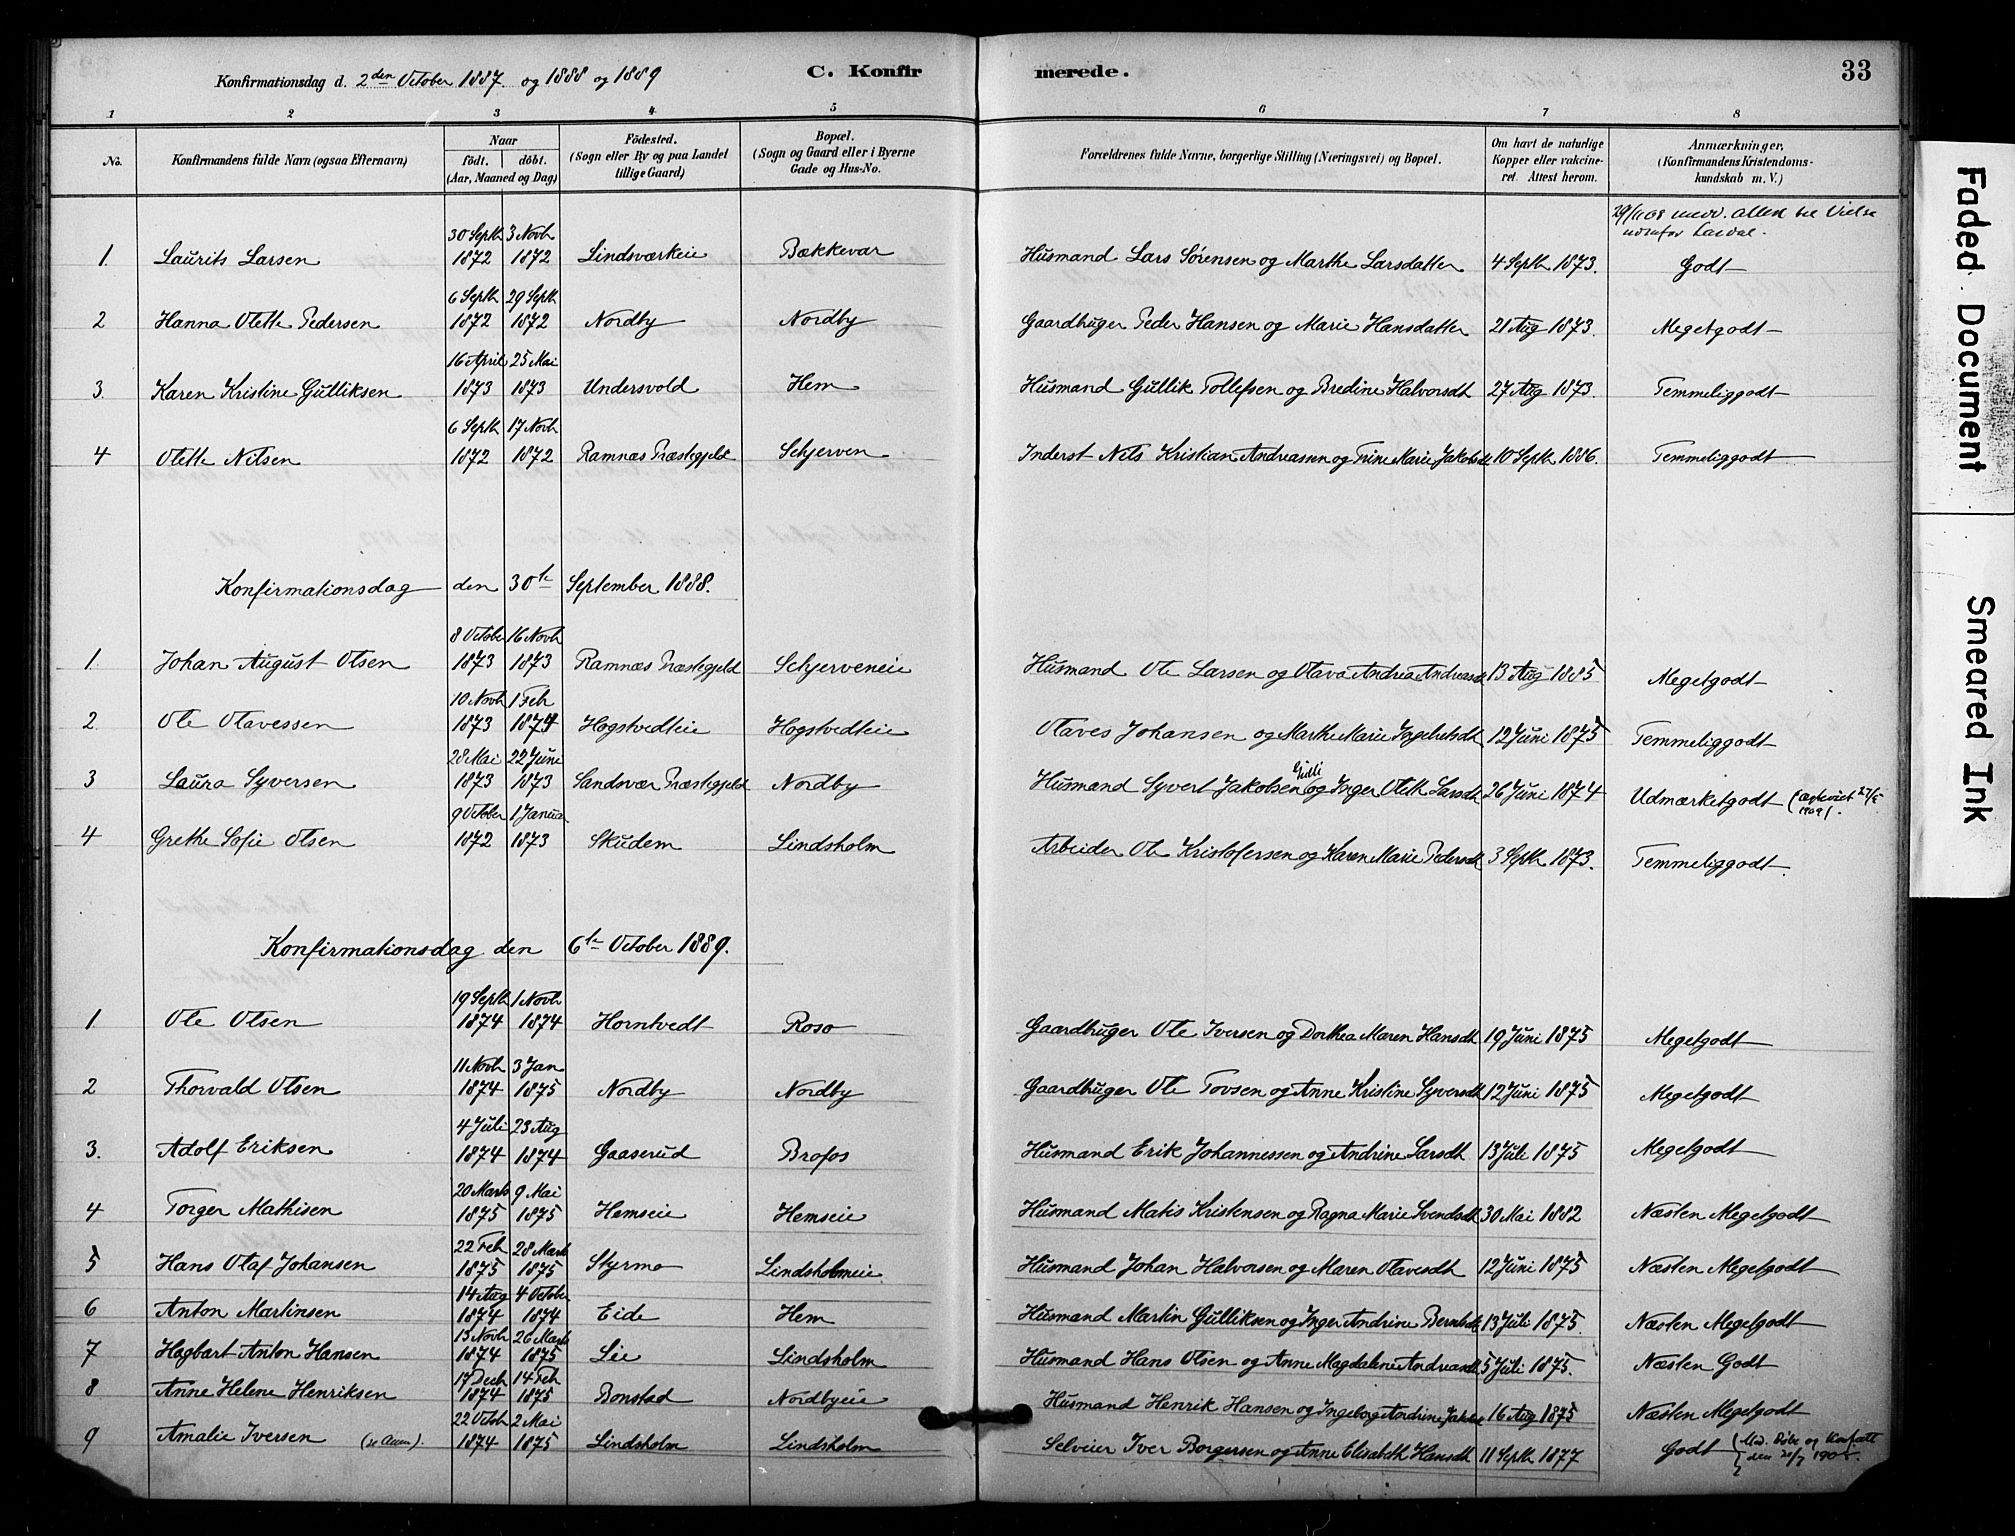 Konfirmationsdag d. 2den October 1887. og 1888 og 1889 C. Konfirmerede. 33
1 2 3 4 5 6 7 8
No. Konfirmandens fulde Navn (ogsaa Efternavn) Naar födt. döbt. (Aar, Maaned og Dag) Födested. (Sogn eller By og paa Landet tillige Gaard) Bopæl. (Sogn og Gaard eller i Byerne Gade og Hus-No. Forældrenes fulde Navne, borgerlige Stilling (Næringsvei) og Bopæl. Om havt de naturlige Kopper eller vakcineret. Attest herom. Anmærkninger, (Konfirmandens Kristendomskundskab m. V.)
29/11 08 Attest til Vielse udenfor
30 Septb 3 Novb
1. Laurits Larsen 1872 1872 Lindsværkeie Bækkevar Husmand Lars Sørensen og Marthe Larsdatter 4 Septb 1873. Godt
6 Septb 29 Septb
2 Hanna Olette Pedersen 1872 1872 Nordby Nordby Gaardbruger Peder Hansen og Marie Hansdatter 21 Aug 1873. Megetgodt
16 April 25 Mai
3. Karen Kristine Gulliksen 1873 1873 Undersvold Hem Husmand Gullik Tollefsen og Bredine Halvorsdt 27 Aug 1873. Temmeliggodt
6 Septb 17 Novb
4 Olette Nilsen 1872 1872 Ramnæs Præstegjeld Schjerven Inderst Nils Kristian Andreassen og Trine Marie Jakobsdt 10 Septb 1886. Temmeliggodt
Konfirmationsdag den 30te September 1888.
8 October 16 Novb
1. Johan August Olsen 1873 1873 Ramnæs Præstegjeld Schjerveneie Husmand Ole Larsen og Olava Andrea Andreasdt 13 Aug 1885 Megetgodt
10 Novb 1 Feb
2. Ole Olavessen 1873 1874 Hogstvedteie Hogstvedteie Olaves Johansen og Marthe Marie Ingebretsdt 12 Juni 1875 Temmeliggodt
28 Mai 22 Juni
3 Laura Syversen 1873 1873 Sandsvær Præstegjeld Nordby Husmand Syvert Jakobsen og Inger Oleth Larsdt 26 Juni 1874 Udmærketgodt
9 October 1 Januar
4 Grethe Sofie Olsen 1872 1873 Skudem Lindsholm Arbeider Ole Kristofersen og Karen Marie Pedersdt 3 Septb 1873. Temmeliggodt
Konfirmationsdag den 6te October 1889.
19 Septb 1 Novb
1. Ole Olsen 1874 1874 Horntvedt Roso Gaardbruger Ole Iversen og Dorthea Maren Hansdt 19 Juni 1875 Megetgodt
11 Novb 3 Jan
2 Thorvald Olsen 1874 1875 Nordby Nordby Gaardbruger Ole Tovsen og Anne Kristine Syversdt 12 Juni 1875 Megetgodt
4 Juli 23 Aug
3. Adolf Eriksen 1874 1874 Gaaserud Brofos Husmand Erik Johannessen og Andrine Larsdt 13 Juli 1875 Megetgodt
20 Marts 9 Mai
4 Torger Mathisen 1875 1875 Hemseie Hemseie Husmand Matis Kristensen og Ragna Marie Svendsdt 30 Mai 1882 Næsten Megetgodt
22 Feb 28 Marts
5 Hans Olaf Johansen 1875 1875 Styrmo Lindsholmeie Husmand Johan Halvorsen og Maren Olavesdt 12 Juni 1875 Næsten Megetgodt
14 Aug 4 October
6 Anton Martinsen 1874 1874 Eide Hem Husmand Martin Gulliksen og Inger Andrine Berntsdt 13 Juli 1875. Næsten Megetgodt
13 Novb 26 Marts
7 Hagbart Anton Hansen 1874 1875 Lie Lindsholm Husmand Hans Olsen og Anne Magdalene Andreasdt 5 Juli 1875. Næsten Godt
17 Decb 14 Feb
8 Anne Helene Henriksen 1874 1875 Bonstad Nordbyeie Husmand Henrik Hansen og Ingeborg Andrine Jakobsdt 16 Aug 1875 Næsten Megetgodt
22 Octob 2 Mai
9 Amalie Iversen 1874 1875 Lindsholm Lindsholm Selveier Iver Borgersen og Anne Elisabeth Hansdt 11 Septb 1877 Godt
Faded Document
Smeared Ink